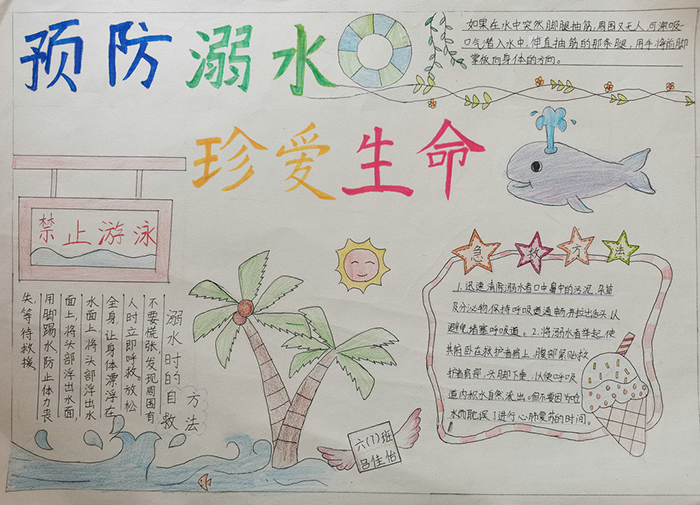 预防溺水
珍爱生命
如果在水中突然脚腿抽筋,周围又无人,可深吸
口气潜入水中,伸直抽筋的那条腿,用手将前脚
掌板向身体的方向。
禁止游泳
溺水时的自救方法
不要慌张发现周围有
人时立即呼救放松
全身,让身体漂浮在
水面上,将头部浮出水
面上,将头部浮出水面,
用脚踢水防止体力丧
失,等待救援。
急救方法
1.迅速清除溺水者口中鼻中的污泥、杂草
及分泌物,保持呼吸道通畅,并拉出舌头,以
避免堵塞呼吸道。2.将溺水者举起,使
其俯卧在救护者肩上,腹部紧贴救
护者肩部,头脚下垂,以使呼吸
道内积水自然流出。但不要因为呛
水而耽误了进行心肺复苏的时间。
六(7)班
吕佳怡